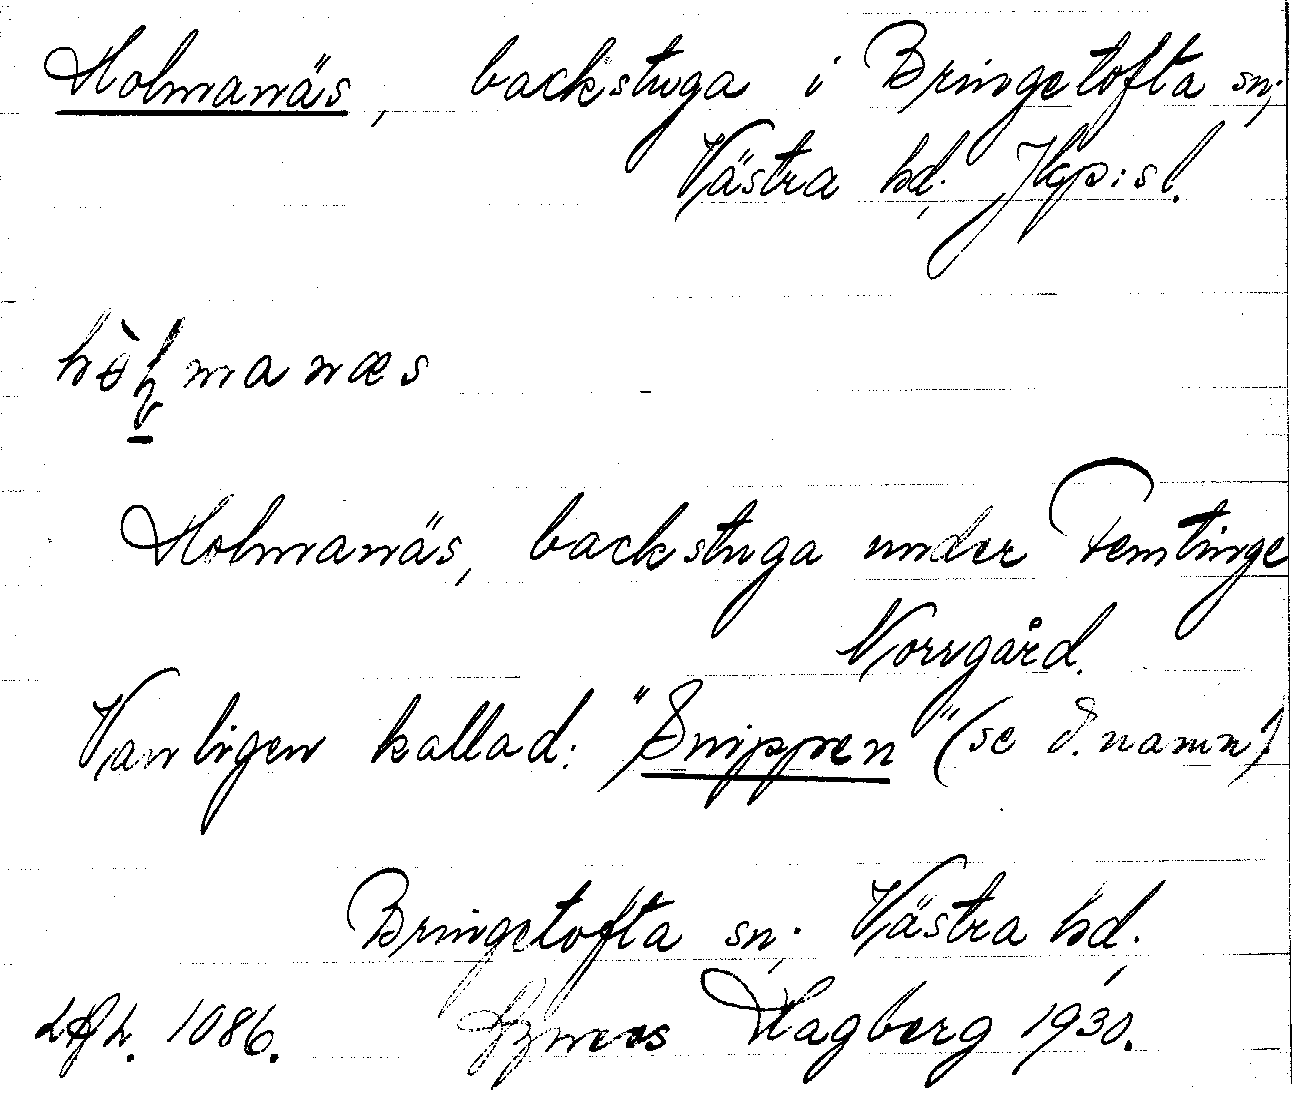 Holmanäs, backstuga i Bringetofta sn;
Västra hd; Jkp:s l.
Holmanäs, backstuga under Femtinge
Norrgård.
Vanligen kallad: "Snippen" (se d. namn)
Bringetofta sn; Västra hd;
1086. Hagberg 1930.